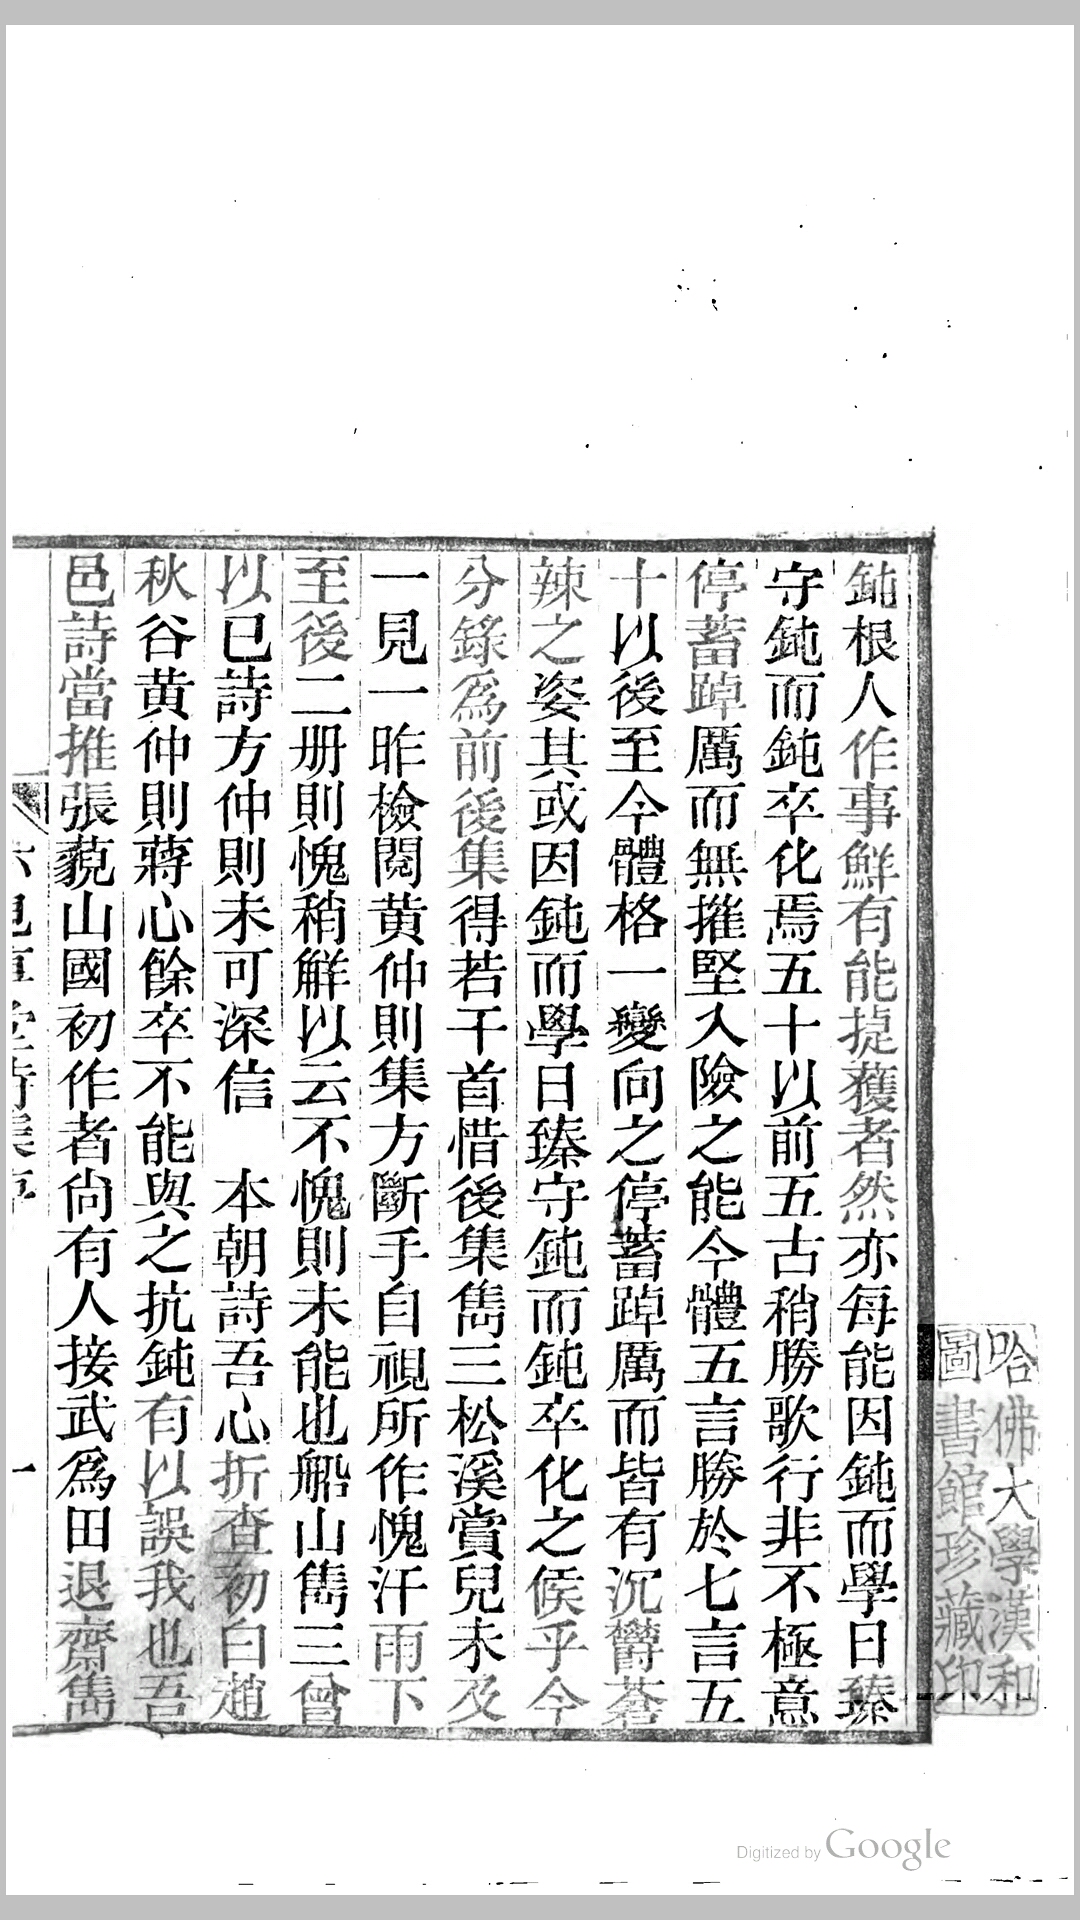 鈍根人作事鮮有能㨗獲者然亦每能因鈍而學日臻
守鈍而鈍卒化焉五十以前五古稍勝歌行非不極意
停蓄踔厲而無摧堅入險之能今體五言勝於七言五
十以後至今體格一變向之停蓄踔厲而皆有沉欝蒼
辣之姿其或因鈍而學日臻守鈍而鈍卒化之候乎今
分錄爲前後集得若干首惜後集雋三松溪賞兒未及
一見一昨檢閱黄仲則集方斷手自視所作愧汗雨下
至後二册則愧稍觧以云不愧則未能也船山雋三曾
以已詩方仲則未可深信　本朝詩吾心折查初白趙
秋谷黄仲則蔣心餘卒不能與之抗鈍有以誤我也吾
邑詩當推張藐山國初作者尙有人接武爲田退齋雋
一
哈佛大學漢和
圖書館珍藏印
Digitized by Google